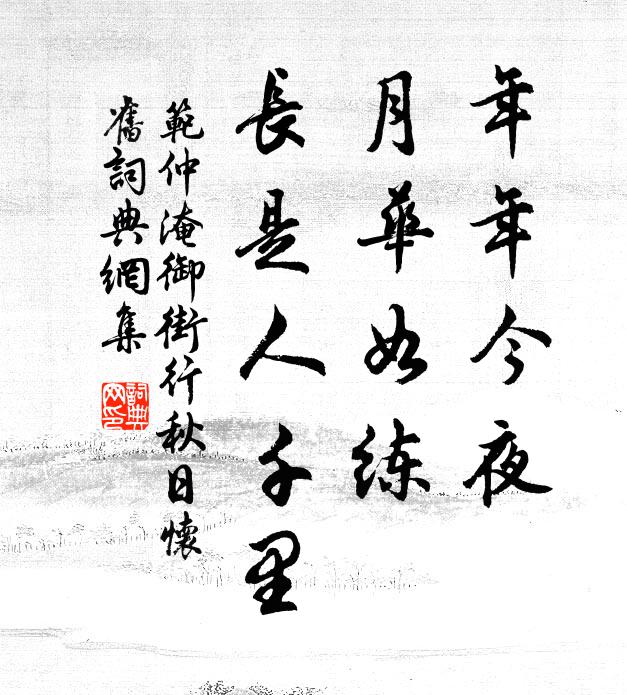 年年今夜
月華如练
長是人千里
範仲淹御街行秋日懷
舊詞典網集
詞典
网印